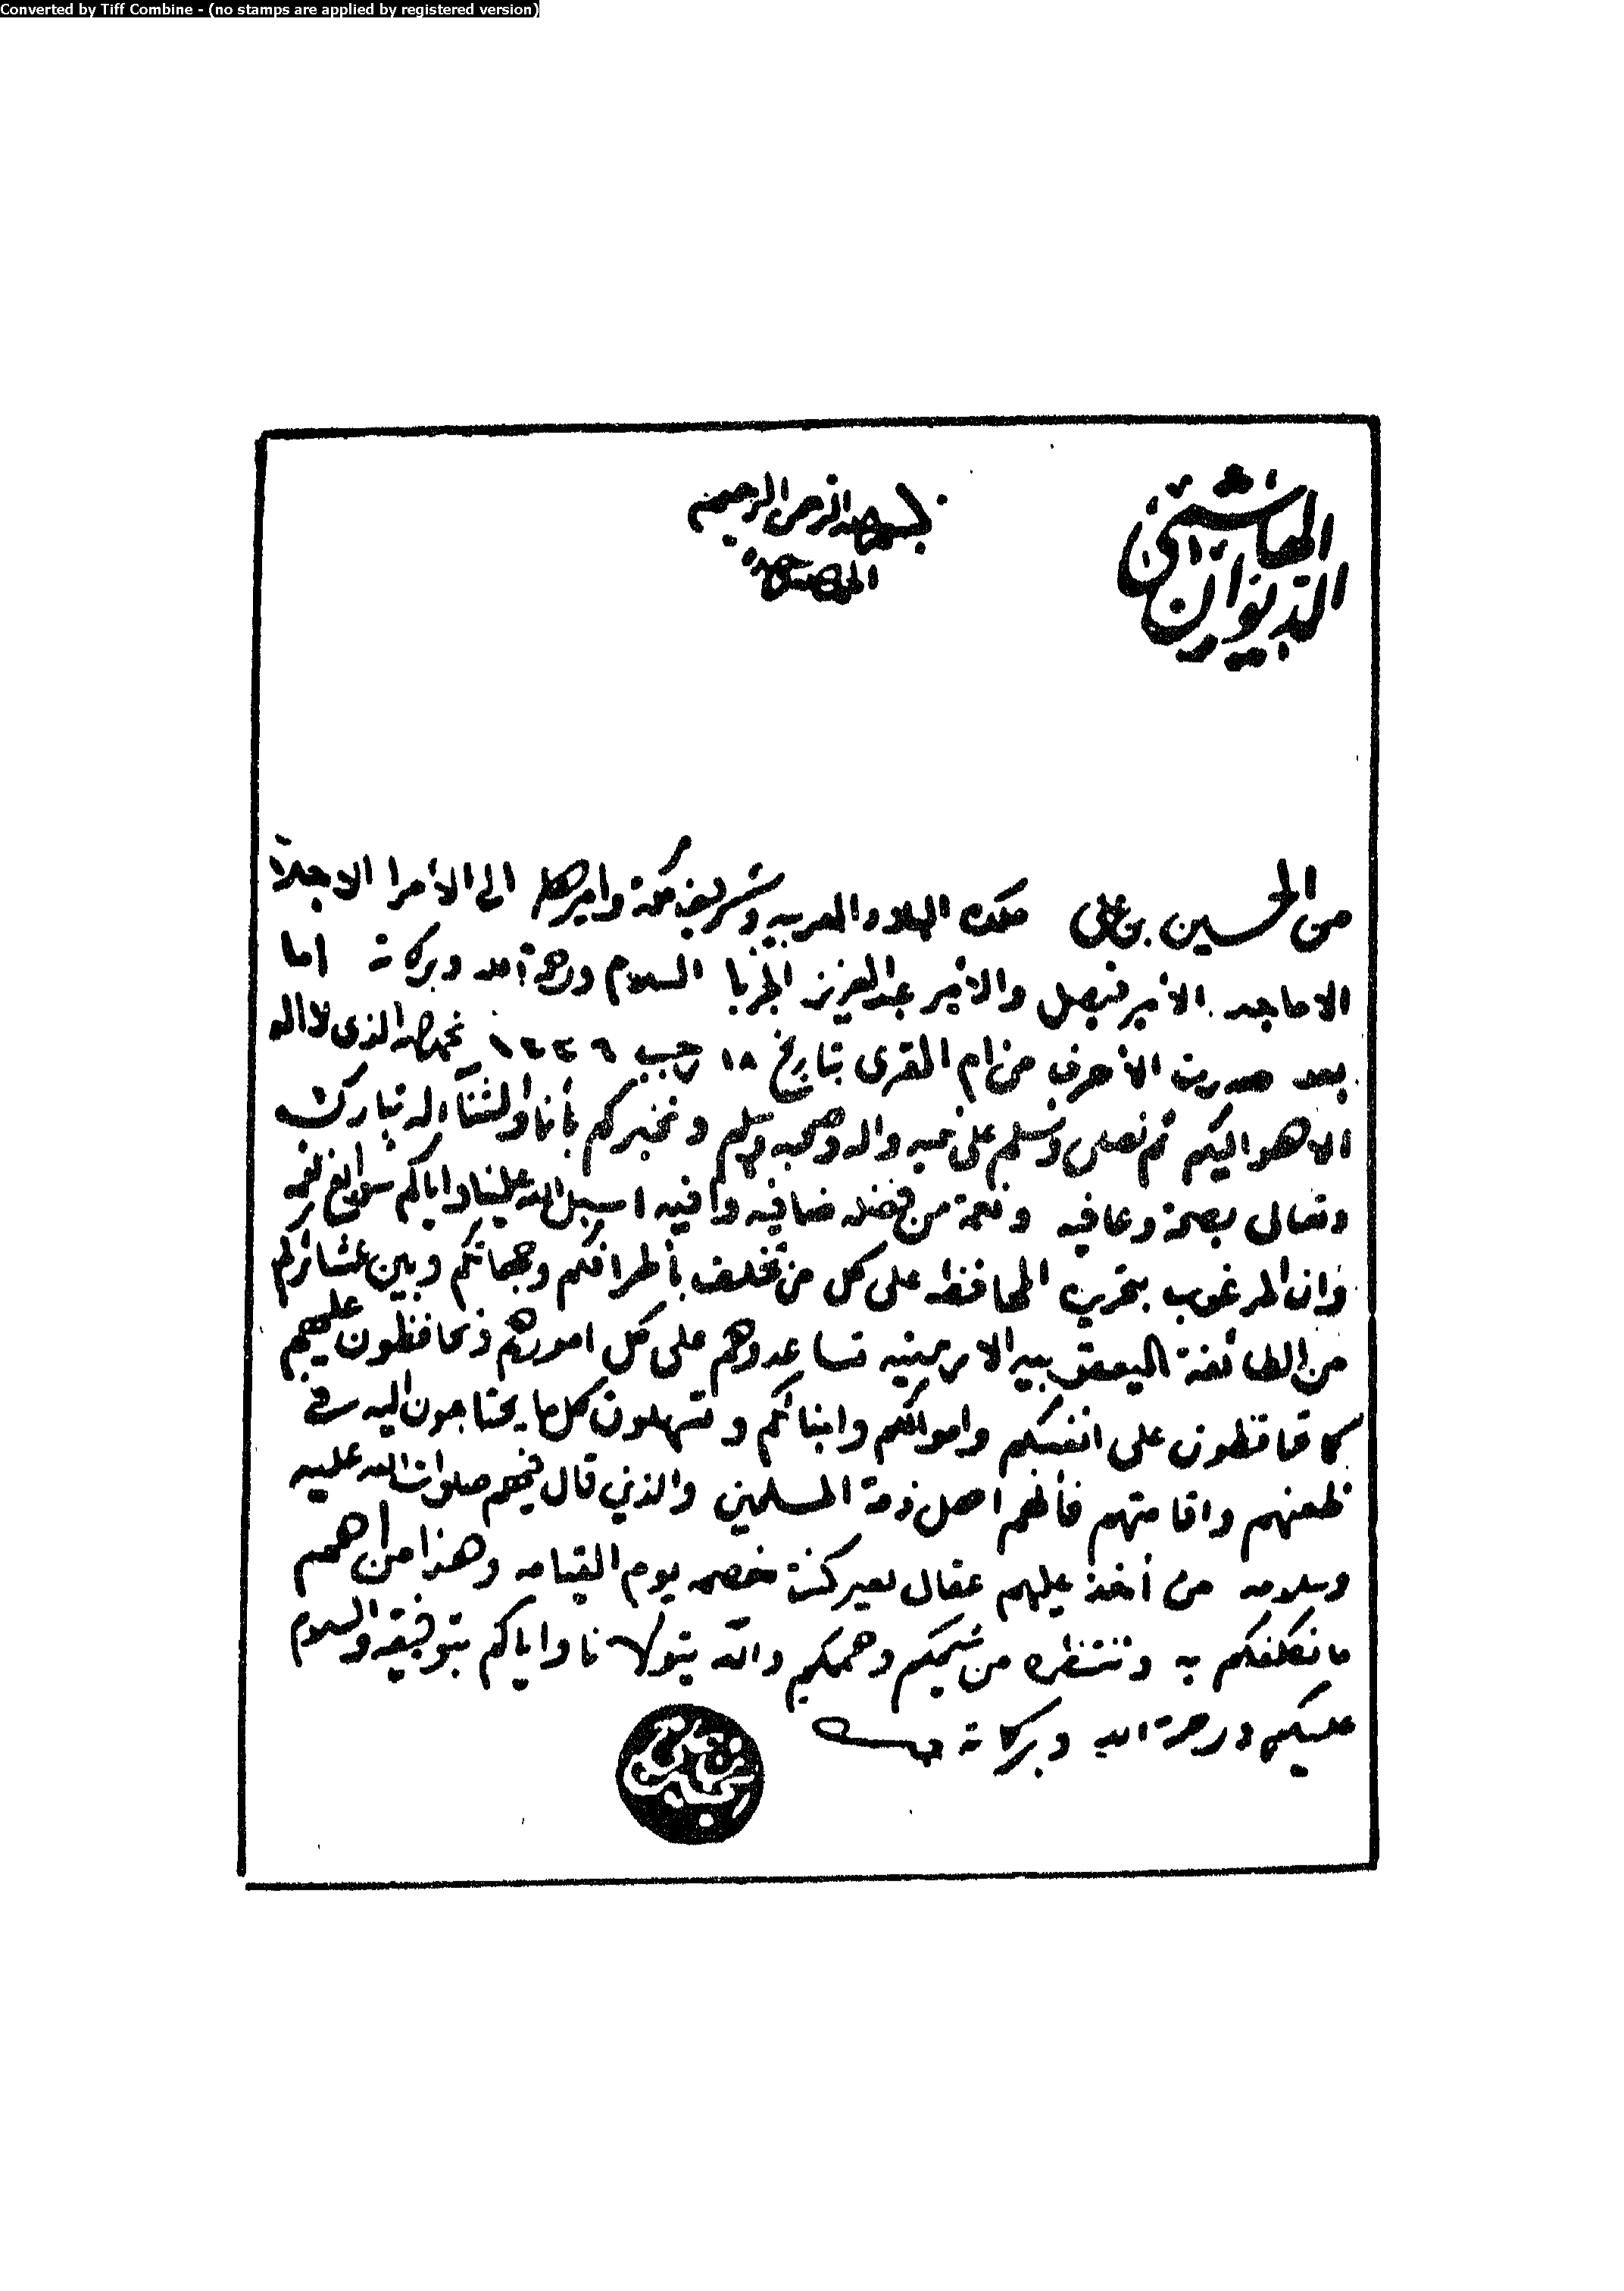 Converted by Tiff Combine - (no stamps are applied by registered version)
بسم الله الرحمن الرحيم
الحمد لله وحده
الديوان الهاشمي
من الحسين بن علي ملك البلاد العربيه وشريف مكة واميرها الى الأمرا الاجلآ
الاماجد الأمير فيصل والأمير عبدالعزيز الجربا السلام ورحمة الله وبركاته اما
بعد صدرت الأحرف من ام القرى بتاريخ ١٨ رجب ١٣٣٦ نحمد الله الذى لا اله
الا هو اليكم ثم نصلى ونسلم على نبيه واله وصحبه وسلم ونخبركم بأنا والثنآء له تبارك
وتعالى بصحة وعافيه ونعمة من فضله ضافيه وافيه اسبل الله علينا واياكم سوابغ نعمه
وان المرغوب بتحريره المحافظه على كل من تخلف بأطرافكم وجهاتكم وبين عشائركم
من الطائفة اليعقوبيه الارمنيه تساعدوهم على كل امورهم وتحافظون عليهم
كما تحافظون على انفسكم واموالكم وابنائكم وتسهلون كل ما يحتاجون اليه في
ظعنهم واقامتهم فأنهم اهل ذمة المسلمين والذي قال فيهم صلوات الله عليه
وسلامه من أخذ عليهم عقال بعير كنت خصمه يوم القيامه وهذا من اهم
ما نكلفكم به وننتظره من شيمكم وهممكم والله يتولانا واياكم بتوفيقه والسلام
عليكم ورحمة الله وبركاته